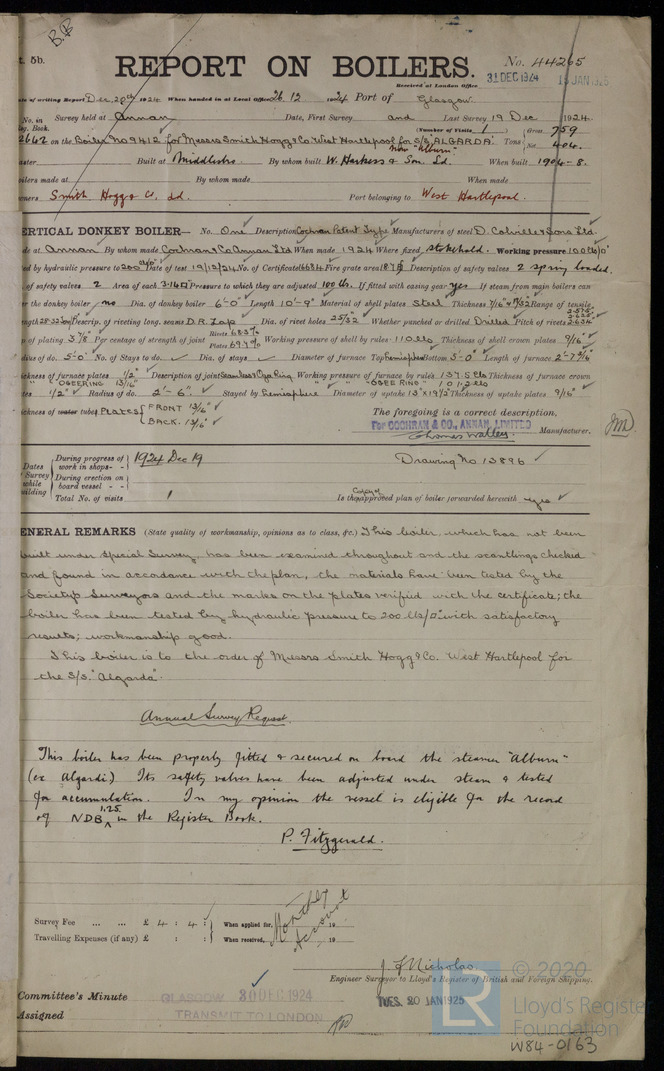 B.B
t. 5b.
REPORT ON BOILERS.
No. 44265
Received at London Office
31 DEC 1924
te of writing Report Dec. 20th 1924 When handed in at Local Office 26.12 1924 Port of Glasgow
No. in Survey held at Annan Date, First Survey and Last Survey 19 Dec 1924
eg. Book. (Number of Visits 1) Gross 759
2642 on the Boiler No 9412 for Messrs Smith Hogg & Co West Hartlepool for S/S "ALGARDA" Tons
now "Alburn" Net 404
aster Built at Middlesbro. By whom built W. Harkess & Son. Ld. When built 1904-8.
oilers made at By whom made When made
wners Smith Hogg & Co. Ld. Port belonging to West Hartlepool
ERTICAL DONKEY BOILER— No. One Description Cochran Patent Type Manufacturers of steel D. Colville & Sons Ltd.
de at Annan By whom made Cochran & Co Annan Ltd When made 1924 Where fixed stokehold. Working pressure 100 lbs/□"
ed by hydraulic pressure to 200 Date of test 19/12/24 No. of Certificate Fire grate area Description of safety valves 2 spring loaded.
of safety valves 2 Area of each 3.140" Pressure to which they are adjusted 100 lbs. If fitted with easing gear yes If steam from main boilers can
er the donkey boiler no Dia. of donkey boiler 6'-0" Length 10'-9" Material of shell plates Steel Thickness Range of tensile
ength 28-32 Descrip. of riveting long. seams D.R. Lap Dia. of rivet holes 25/32" Whether punched or drilled Drilled Pitch of rivets
p of plating 3 7/8" Per centage of strength of joint Rivets Plates Working pressure of shell by rules 110 lbs Thickness of shell crown plates 9/16"
dius of do. 5'-0" No. of Stays to do. Dia. of stays Diameter of furnace Top hemisphere Bottom 5'-0" Length of furnace 2'-7 9/16"
ickness of furnace plates 1/2" Description of joint Seamless & Ogee Ring Working pressure of furnace by rules 137.5 lbs Thickness of furnace crown
" OGEE RING 13/16" " " OGEE RING "
tes 1/2" Radius of do. 2'-6". Stayed by hemisphere Diameter of uptake 13" x 19 1/2" Thickness of uptake plates 9/16"
ickness of water tubes Plates FRONT 13/16"
BACK. 13/16"
The foregoing is a correct description.
For COCHRAN & CO., ANNAN, LIMITED
Manufacturer.
Dates of Survey while building
During progress of work in shops - - 1924 Dec 19
During erection on board vessel - -
Total No. of visits 1
Drawing No 13896
Is the Copy of approved plan of boiler forwarded herewith yes
ENERAL REMARKS (State quality of workmanship, opinions as to class, &c.) This boiler, which has not been
built under Special Survey, has been examined throughout and the scantlings checked
and found in accordance with the plan, the materials have been tested by the
Society's Surveyors and the marks on the plates verified with the certificate; the
boiler has been tested by hydraulic pressure to 200 lbs/□" with satisfactory
results; workmanship good.
This boiler is to the order of Messrs Smith Hogg & Co. West Hartlepool for
the S/S. "Algarda".
Annual Survey Request.
This boiler has been properly fitted & secured on board the steamer "Alburn"
(ex Algardi.) Its safety valves have been adjusted under steam & tested
for accumulation. In my opinion the vessel is eligible for the record
of NDB 1.25 in the Register Book.
P. Fitzgerald.
Survey Fee ... ... £ 4 : 4 : When applied for, 19
Travelling Expenses (if any) £ : : When received, 19
Monthly Account
J. F. Nicholas.
Engineer Surveyor to Lloyd's Register of British and Foreign Shipping.
Committee's Minute GLASGOW 30 DEC 1924 TUES. 20 JAN 1925
Assigned TRANSMIT TO LONDON
© 2020
Lloyd's Register
Foundation
W84-0163